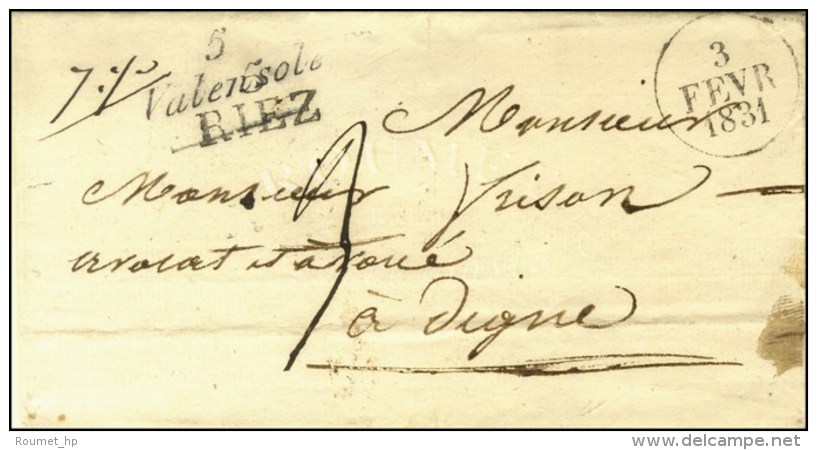 5
Valensole
5
RIEZ
3
FEVR
1831
Monsieur
Monsieur
avocat et avoué
à Digne
Roumet_hp
www.delcampe.net